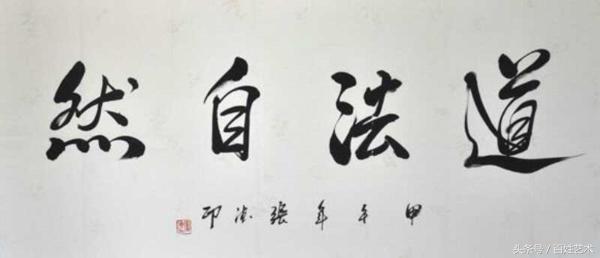 道法自然
甲午年張印
头条号／百姓艺术